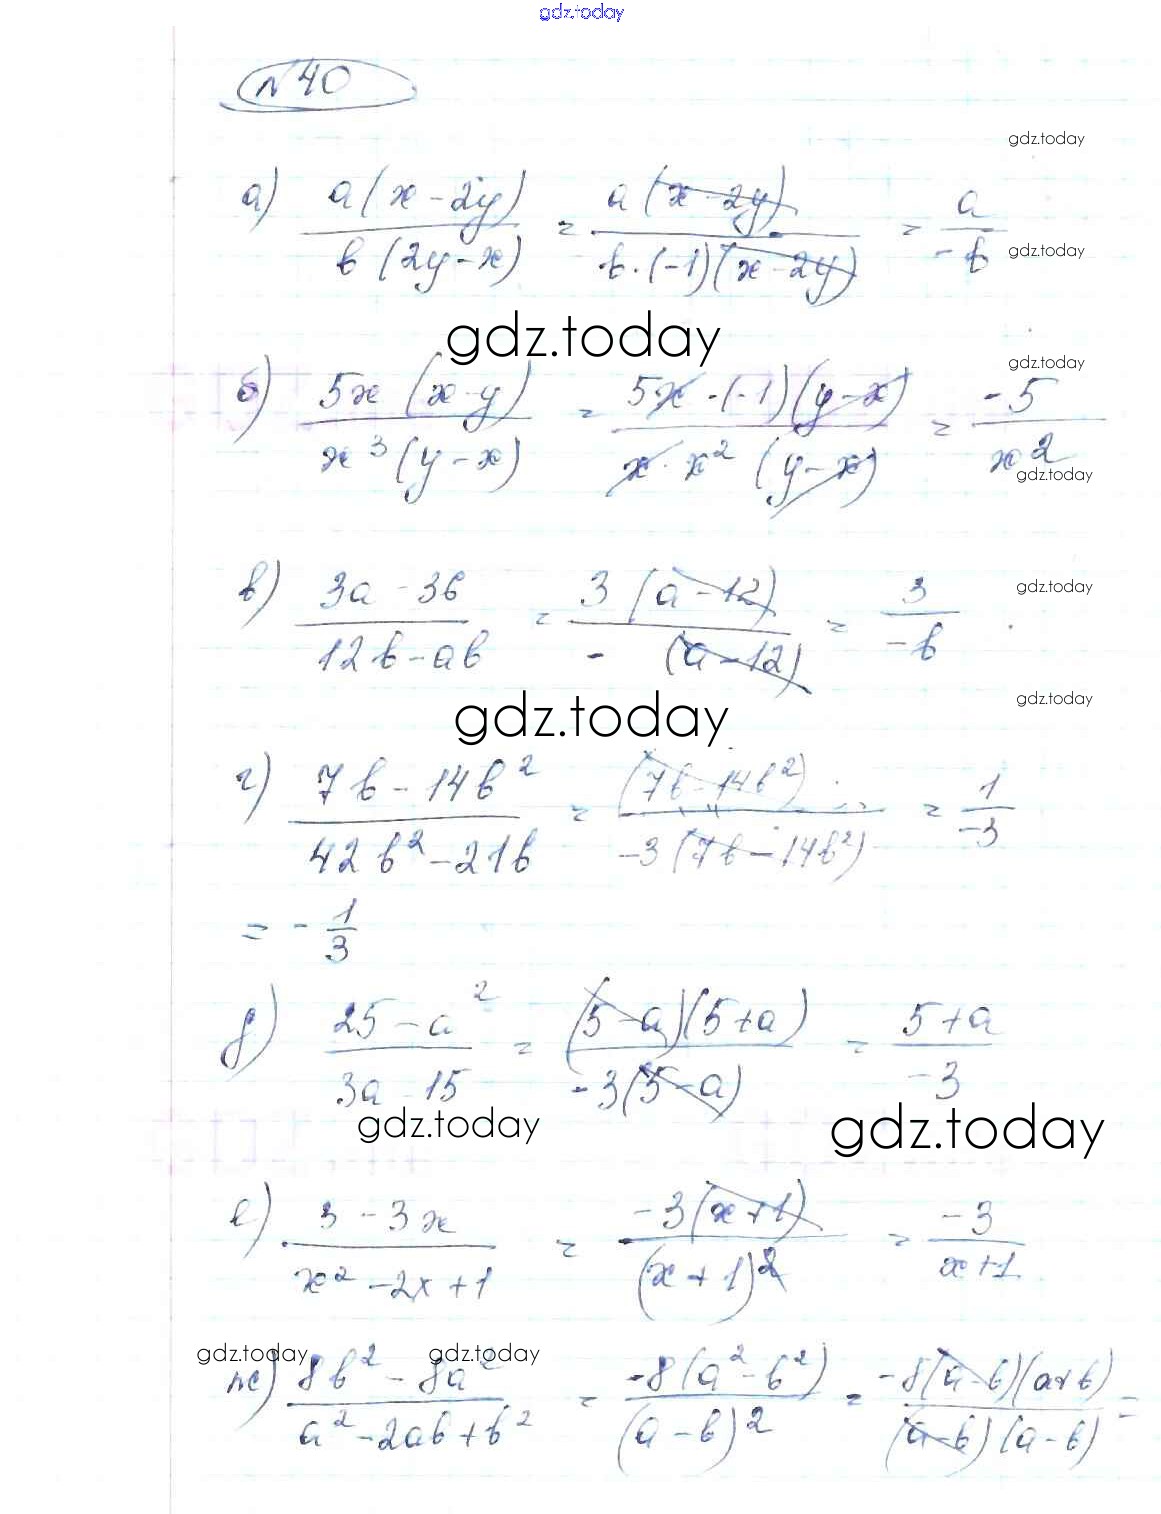 gdz.today
№ 40
gdz.today
а) a(x-2y)/b(2y-x) = a(x-2y)/b·(-1)(x-2y) = a/-b
gdz.today
gdz.today
gdz.today
б) 5x(x-y)/x³(y-x) = 5x·(-1)(y-x)/x·x²(y-x) = -5/x²
gdz.today
в) 3a-36/12b-ab = 3(a-12)/-(a-12) = 3/-b
gdz.today
gdz.today
gdz.today
г) 7b-14b²/42b²-21b = (7b-14b²)/-3(7b-14b²) = 1/-3
= -1/3
д) 25-a²/3a-15 = (5-a)(5+a)/-3(5-a) = 5+a/-3
gdz.today
gdz.today
е) 3-3x/x²-2x+1 = -3(x+1)/(x+1)² = -3/x+1
gdz.today gdz.today
ж) 8b²-8a²/a²-2ab+b² = -8(a²-b²)/(a-b)² = -8(a-b)(a+b)/(a-b)(a-b) =